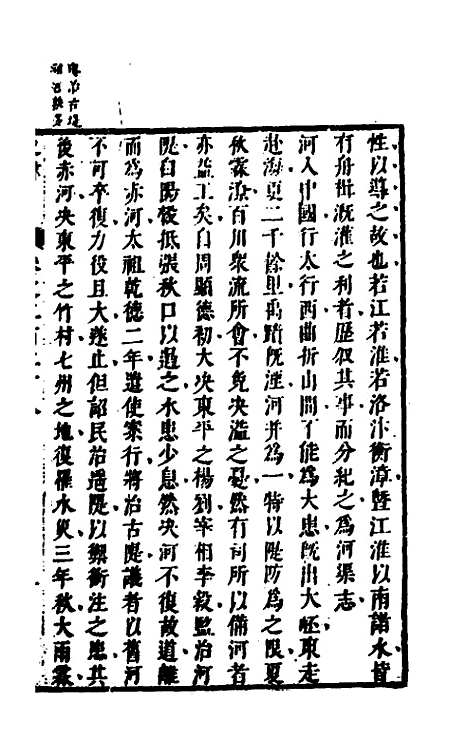 性以導之故也若江若淮若洛汴衡漳暨江淮以南諸水皆
有舟楫溉灌之利者歷叙其事而分紀之為河渠志
河入中國行太行西曲折山間不能為大患既出大伾東走
赴海更二千餘里禹跡既湮河并為一特以隄防為之限夏
秋霖潦百川衆流所會不免決溢之憂然有司所以備河者
亦益工矣自周顯德初大決東平之楊劉宰相李穀監治河
隄自陽榖抵張秋口以遏之水患少息然決河不復故道離
而為赤河太祖乾德二年遣使案行將治古隄議者以舊河
不可卒復力役且大遂止但詔民治遙隄以禦衝注之患其
後赤河決東平之竹村七州之地復罹水災三年秋大雨霖